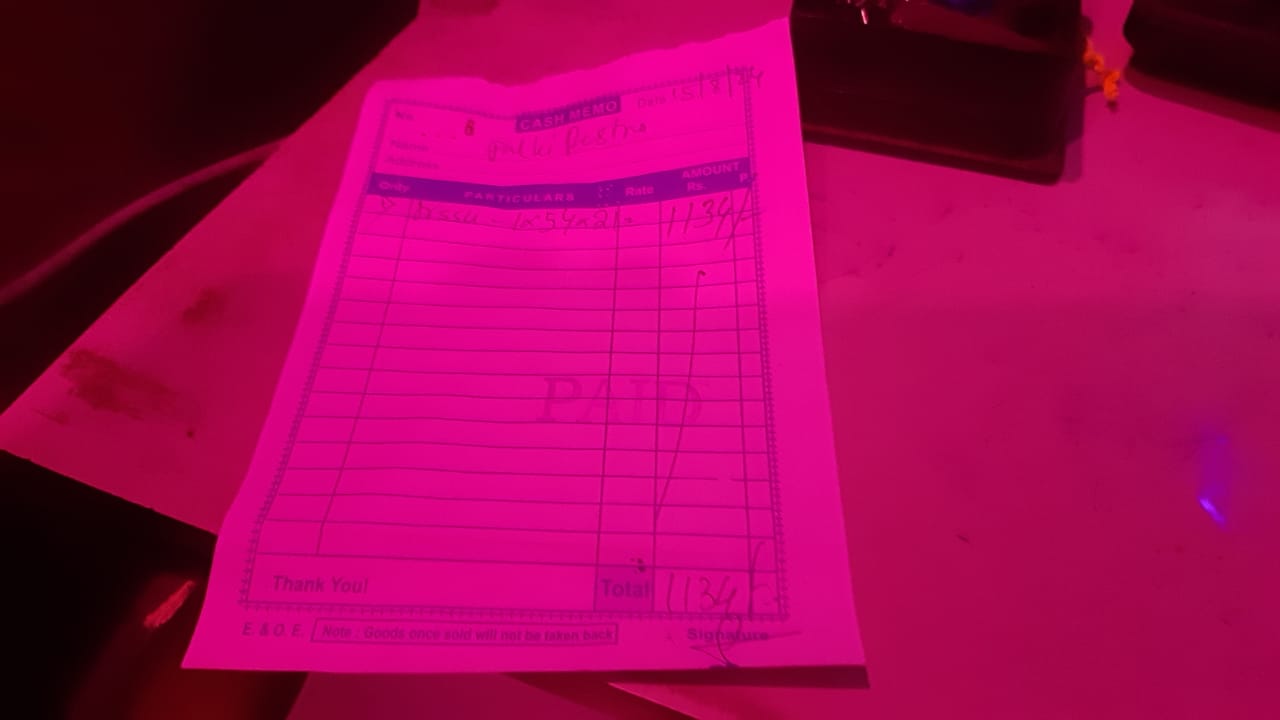 No. 8 CASH MEMO Date 15/8/24
Name
Address
Qnty. PARTICULARS Rate AMOUNT
Rs. P.
1x54x21 1134/-
PAID
Thank You! Total 1134/-
E. & O. E. Note : Goods once sold will not be taken back Signature